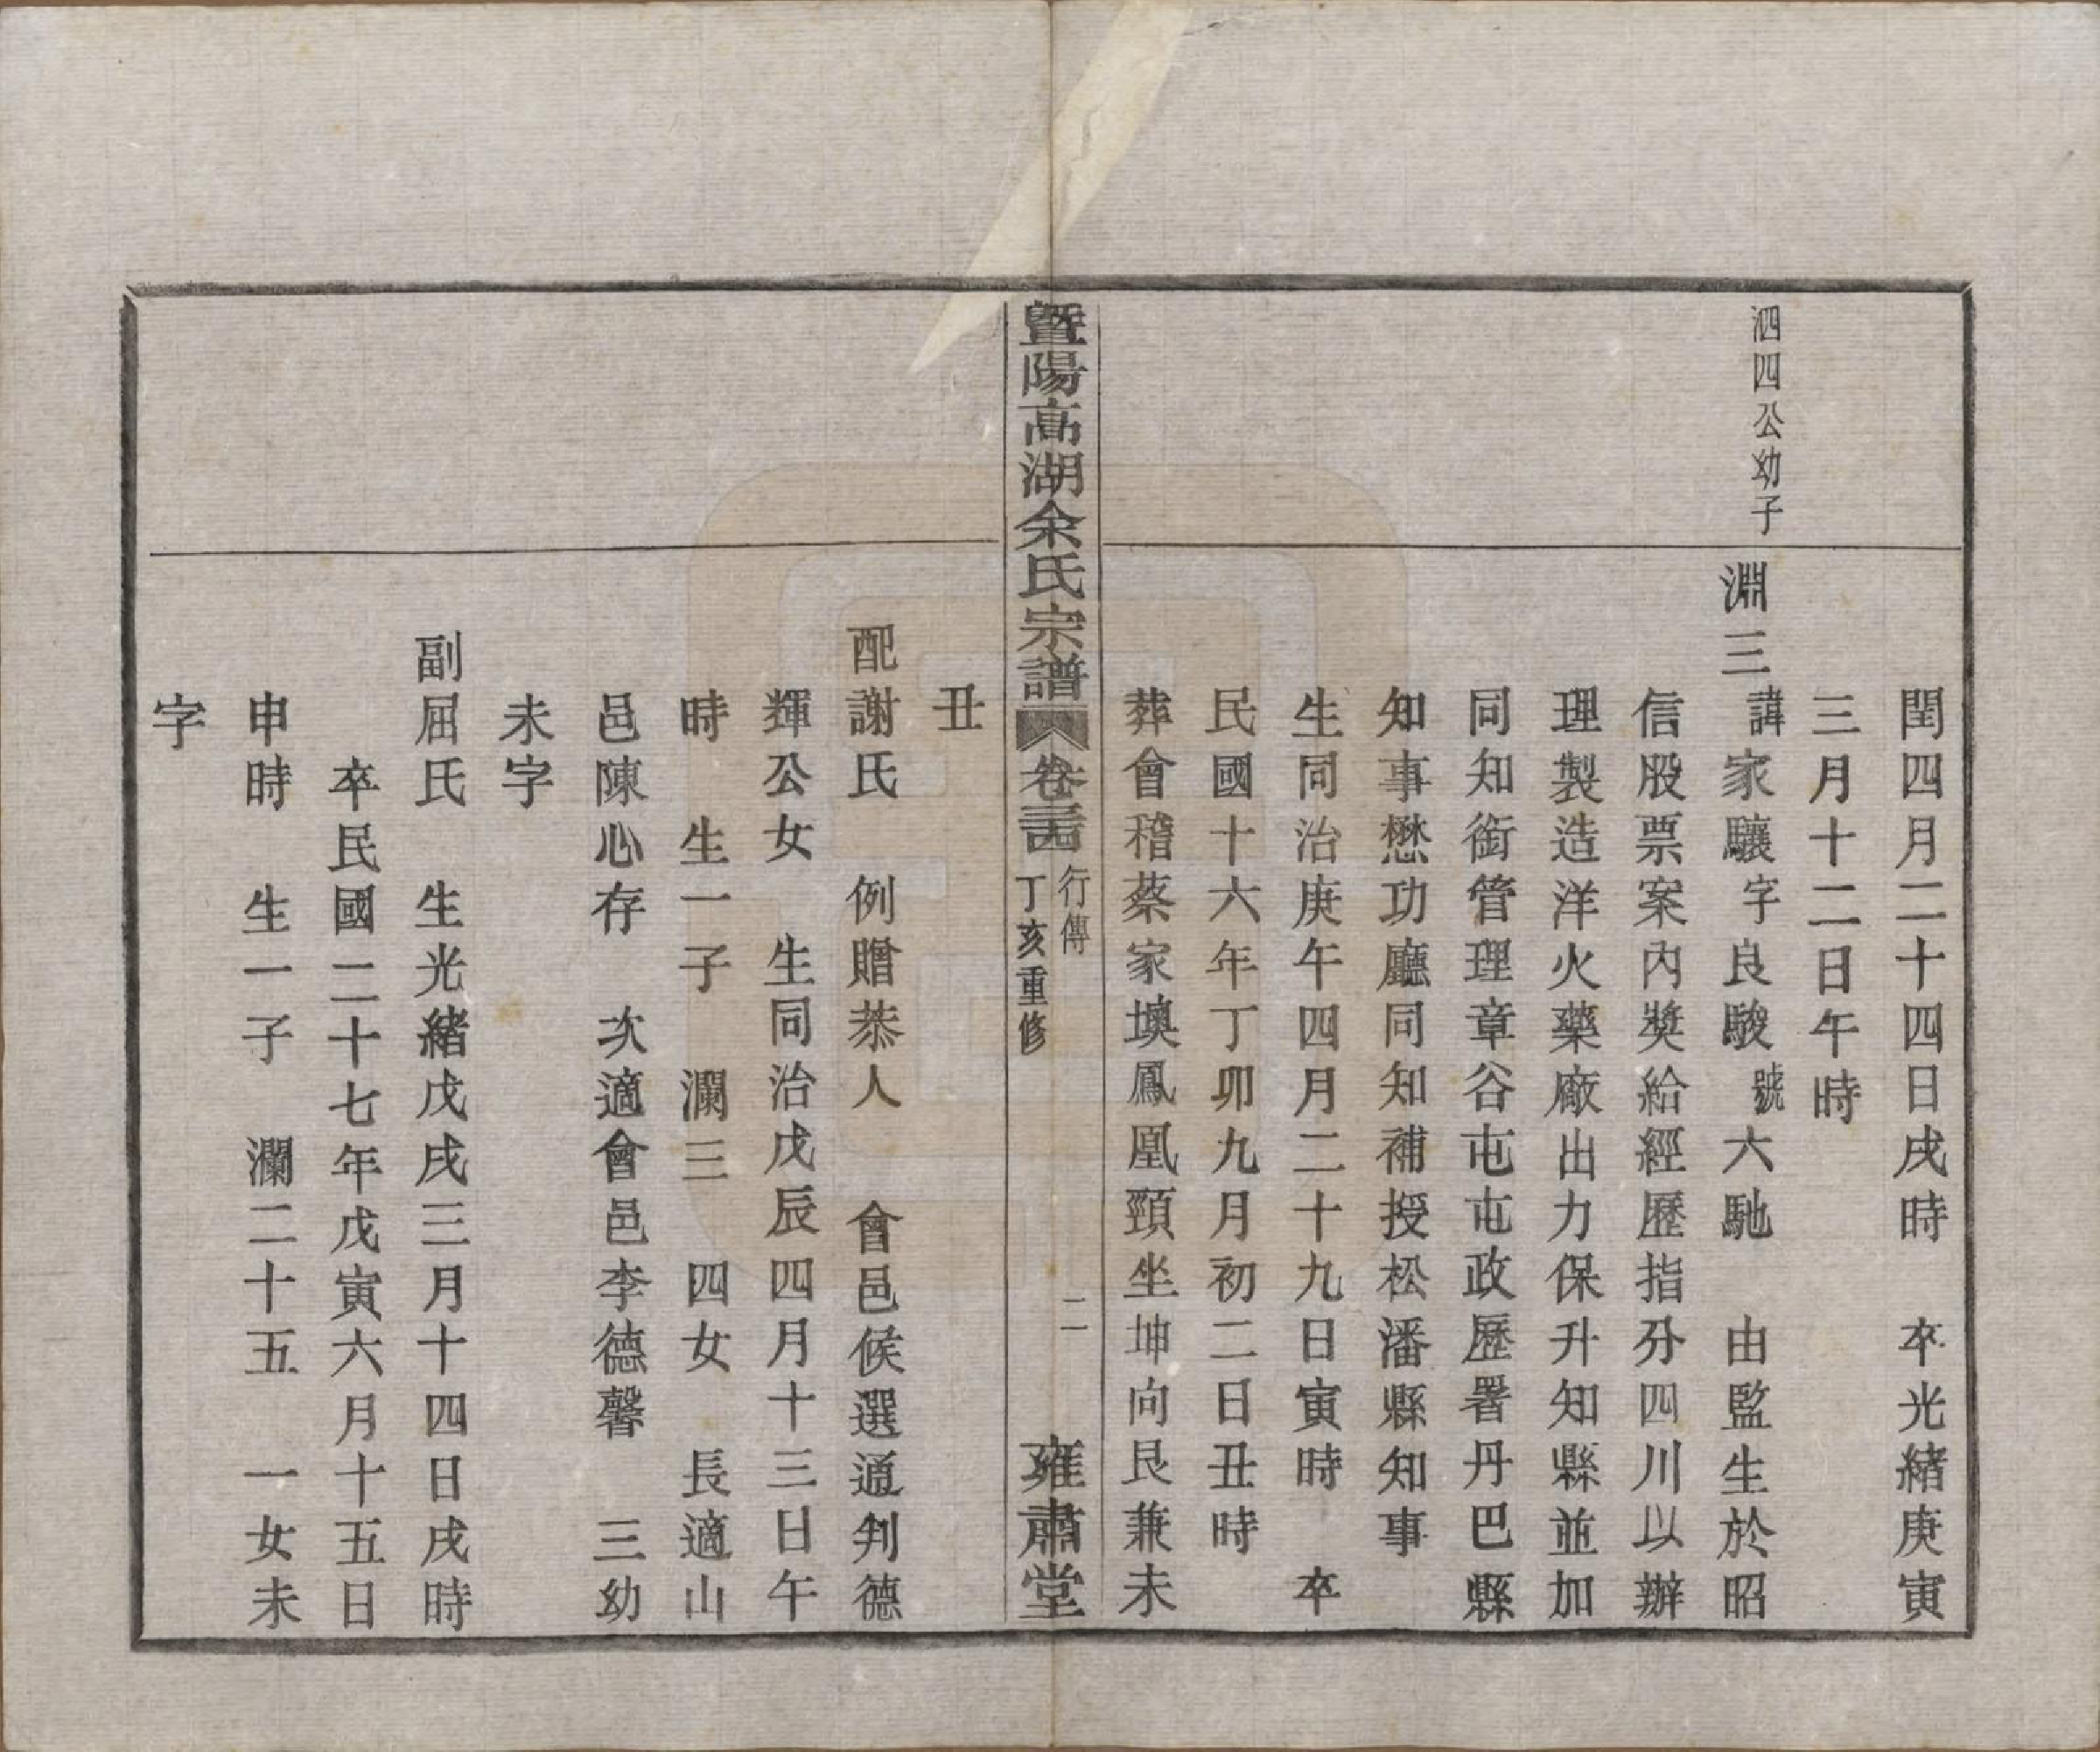 閏四月二十四日戌時　卒光緒庚寅
三月十二日午時
泗四公幼子
淵三諱家驤字良駿號六馳　由監生於昭
信股票案內獎給經歷指分四川以辦
理製造洋火藥廠出力保升知縣並加
同知銜管理章谷屯屯政歷署丹巴縣
知事懋功廳同知補授松潘縣知事
生同治庚午四月二十九日寅時　卒
民國十六年丁卯九月初二日丑時
葬會稽蔡家墺鳳凰頸坐坤向艮兼未
暨陽高湖余氏宗譜　卷三十四　行傳　丁亥重修　二　雍肅堂
丑
配謝氏　例贈恭人　會邑候選通判德
輝公女　生同治戊辰四月十三日午
時　生一子　瀾三　四女　長適山
邑陳心存　次適會邑李德馨　三幼
未字
副屈氏　生光緒戊戌三月十四日戌時
卒民國二十七年戊寅六月十五日
申時　生一子　瀾二十五　一女未
字